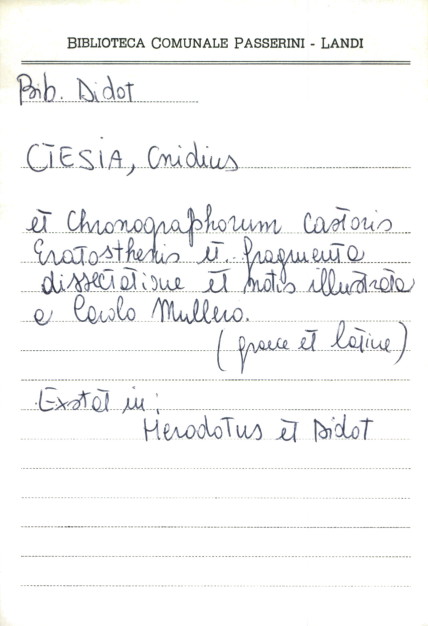 BIBLIOTECA COMUNALE PASSERINI - LANDI
Bib. Didot
CTESIA, Cnidius
et Chronographorum Castoris
Eratosthenis et. fragmenta
dissectatione et notis illustrata
a Carolo Mullero.
(graece et latine)
Exstat in:
Herodotus et Didot